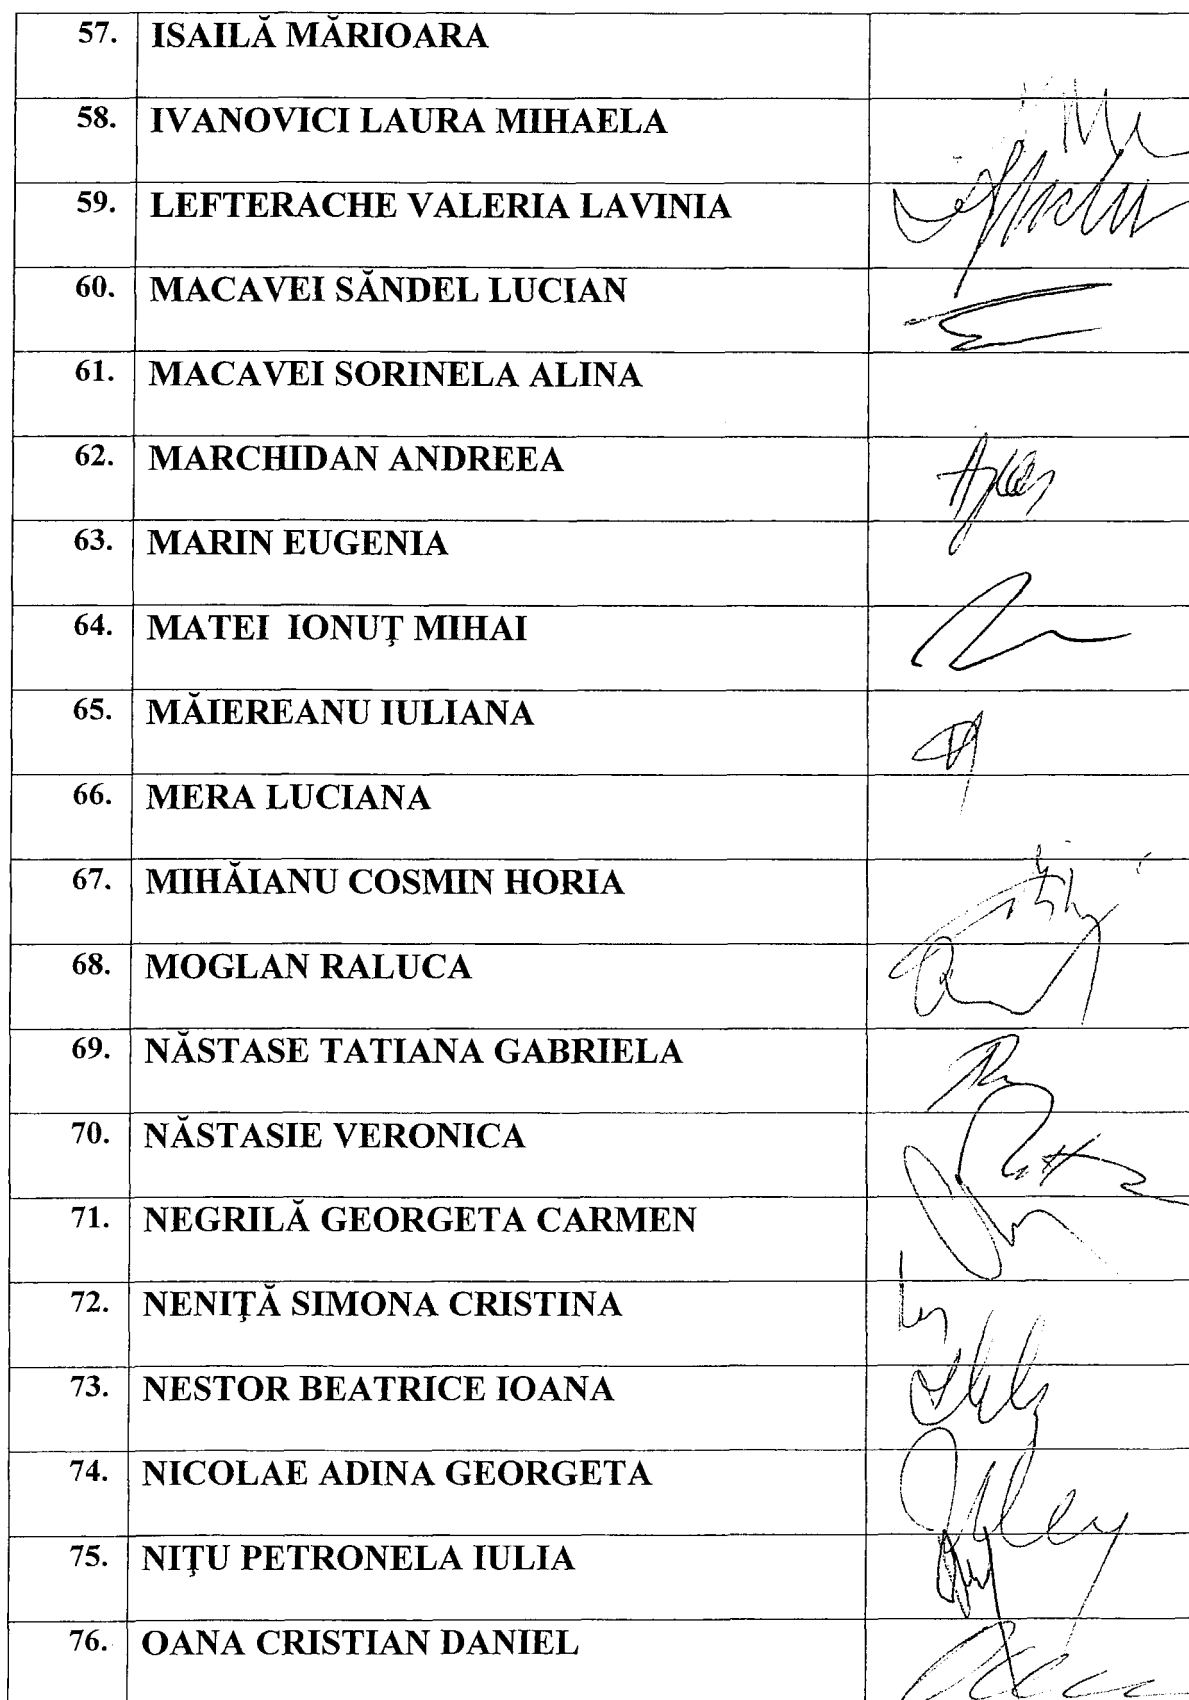 57. ISAILĂ MĂRIOARA
58. IVANOVICI LAURA MIHAELA
59. LEFTERACHE VALERIA LAVINIA
60. MACAVEI SĂNDEL LUCIAN
61. MACAVEI SORINELA ALINA
62. MARCHIDAN ANDREEA
63. MARIN EUGENIA
64. MATEI IONUŢ MIHAI
65. MĂIEREANU IULIANA
66. MERA LUCIANA
67. MIHĂIANU COSMIN HORIA
68. MOGLAN RALUCA
69. NĂSTASE TATIANA GABRIELA
70. NĂSTASIE VERONICA
71. NEGRILĂ GEORGETA CARMEN
72. NENIŢĂ SIMONA CRISTINA
73. NESTOR BEATRICE IOANA
74. NICOLAE ADINA GEORGETA
75. NIŢU PETRONELA IULIA
76. OANA CRISTIAN DANIEL